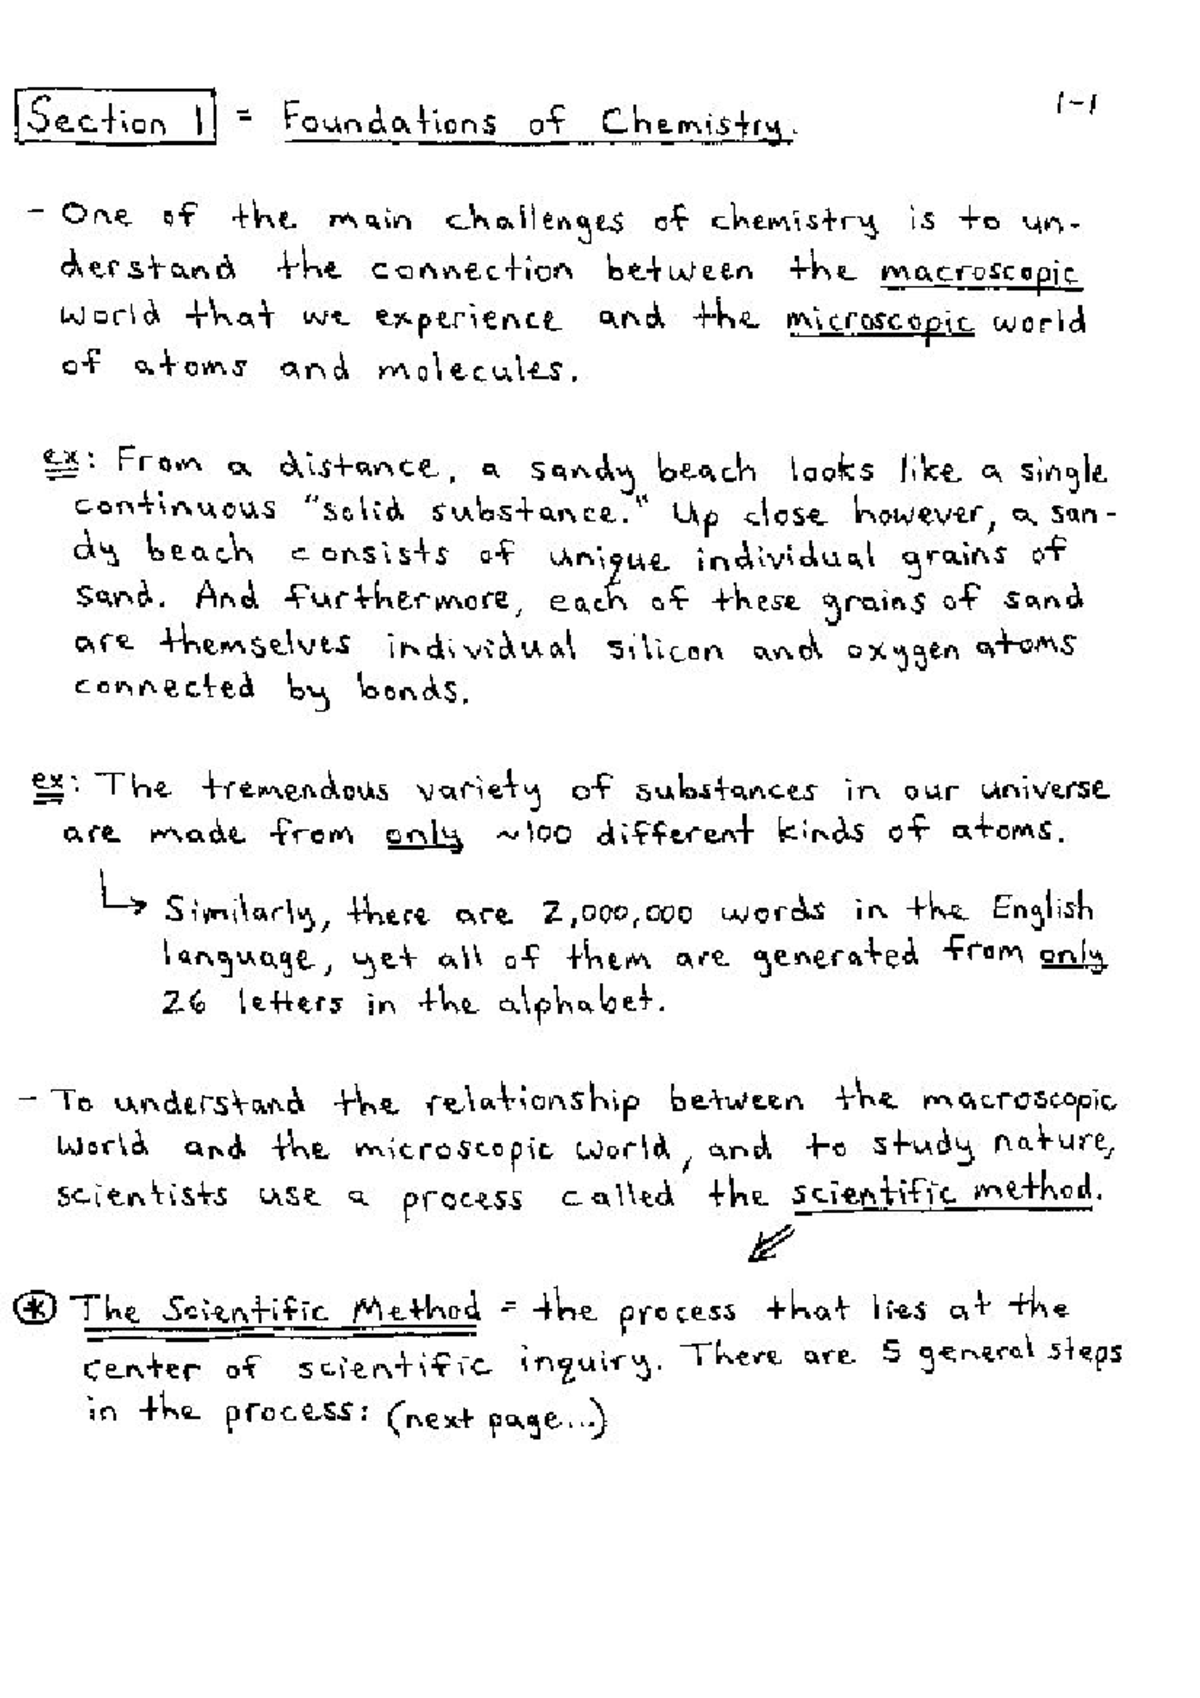 Section 1 = Foundations of Chemistry.
1-1
- One of the main challenges of chemistry is to un-
derstand the connection between the macroscopic
world that we experience and the microscopic world
of atoms and molecules.
ex: From a distance, a sandy beach looks like a single
continuous "solid substance." Up close however, a san-
dy beach consists of unique individual grains of
sand. And furthermore, each of these grains of sand
are themselves individual silicon and oxygen atoms
connected by bonds.
ex: The tremendous variety of substances in our universe
are made from only ~100 different kinds of atoms.
↳ Similarly, there are 2,000,000 words in the English
language, yet all of them are generated from only
26 letters in the alphabet.
- To understand the relationship between the macroscopic
world and the microscopic world, and to study nature,
scientists use a process called the scientific method.
⇙
* The Scientific Method = the process that lies at the
center of scientific inquiry. There are 5 general steps
in the process: (next page...)